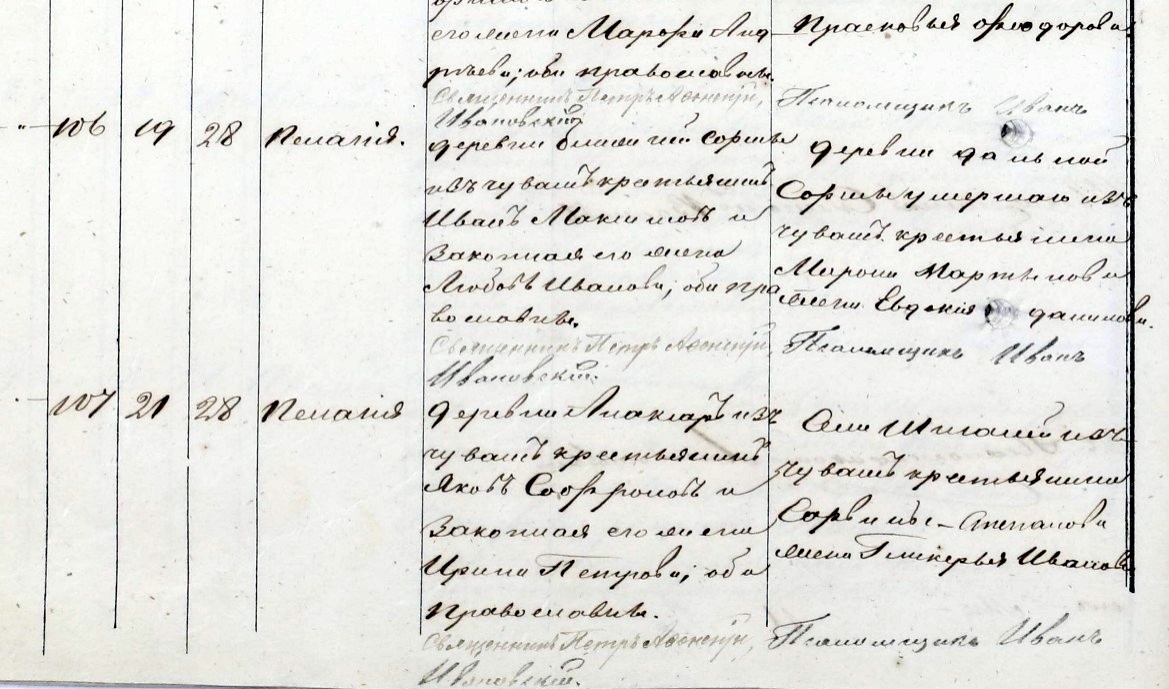 его жена Марѳа Анд
рѣева; оба православны.
Священникъ Петръ
Ивановскій
Прасковья Ѳеодорова
Псаломщикъ Иванъ
106 19 28 Пелагія.
деревни ближней Сормы
изъ чувашъ крестьянинъ
Иванъ Максимовъ и
законная его жена
Любовь Иванова; оба пра
вославны.
Священникъ Петръ
Ивановскій.
деревни дальной
Сормы умершаго изъ
чувашъ крестьянина
Мартынова
жена Евдокія Данилова.
Псаломщикъ Иванъ
107 21 28 Пелагія
деревни изъ
чувашъ крестьянинъ
Яковъ Софроновъ и
законная его жена
Ирина Петрова; оба
православны.
Священникъ Петръ
Ивановскій.
Села изъ
чувашъ крестьянина
Степанова
жена Гликерья Иванова
Псаломщикъ Иванъ